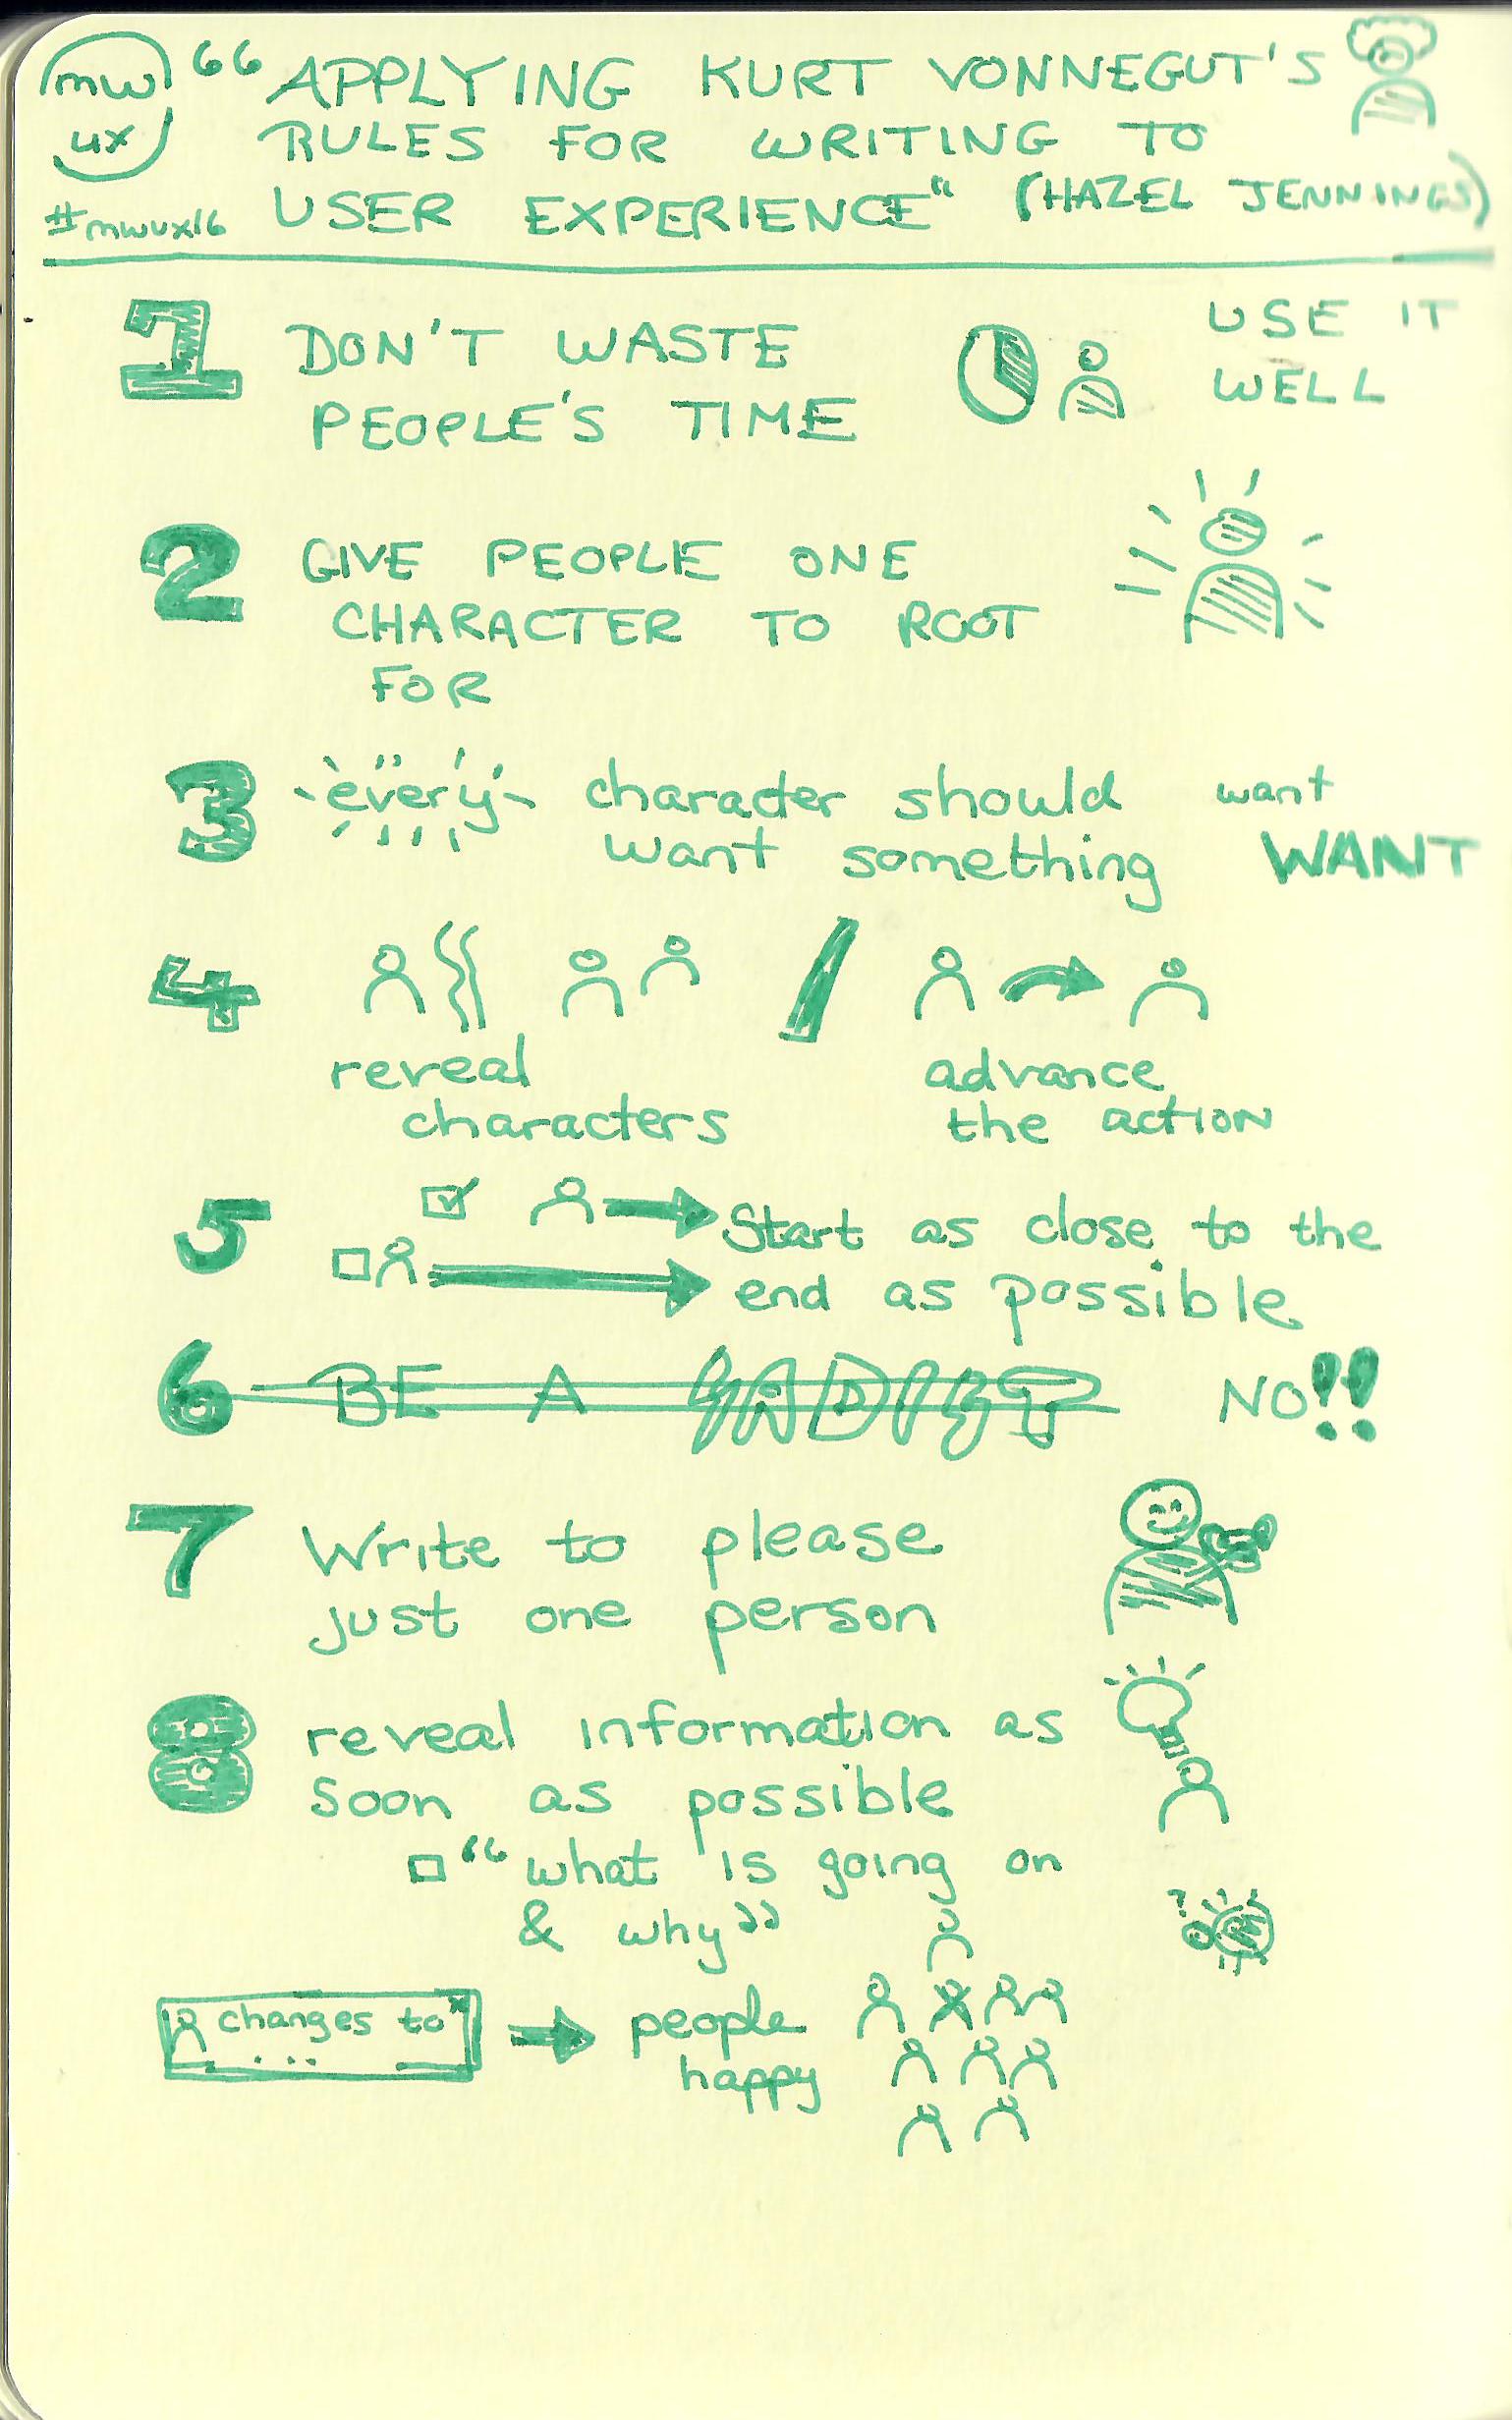 mw
ux
#mwux16
"APPLYING KURT VONNEGUT'S
RULES FOR WRITING TO
USER EXPERIENCE" (HAZEL JENNINGS)
1 DON'T WASTE
PEOPLE'S TIME
USE IT
WELL
2 GIVE PEOPLE ONE
CHARACTER TO ROOT
FOR
3 every character should
want something
want
WANT
4
reveal
characters
/
advance
the action
5 Start as close to the
end as possible
6 BE A SADIST NO!!
7 Write to please
just one person
8 reveal information as
soon as possible
"what is going on
& why"
?
changes to
...
people
happy